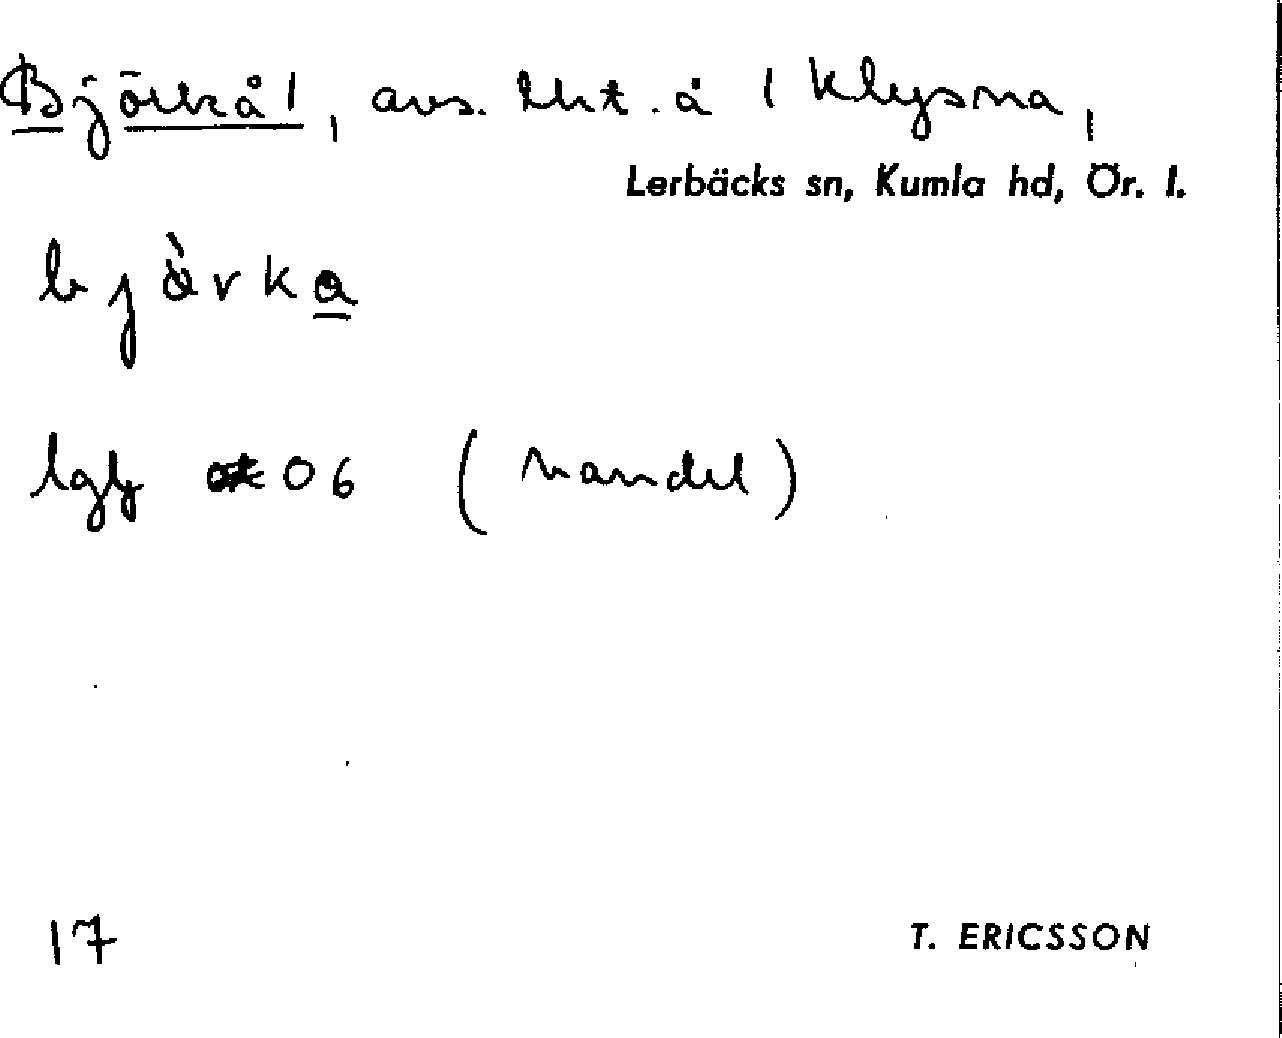 Björkå l, avs. lht. å 1 Klysna,
Lerbäcks sn, Kumla hd, Ör. l.
bjòrka
lgh 06 (Mandel)
17
T. ERICSSON